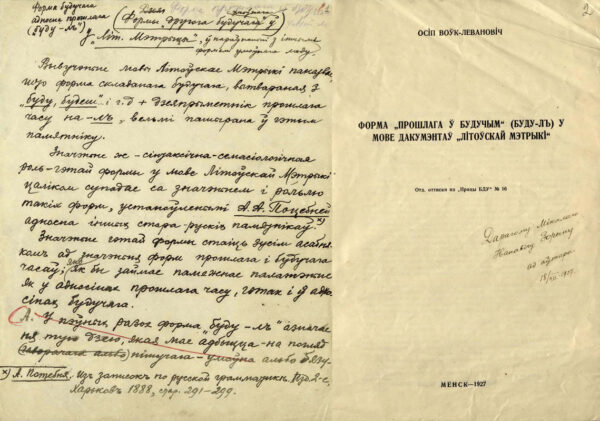 Форма будучага
адносн. прошлага
(буду -лъ")
Форма другога будучага" ў
ў „Літ. Мэтрыцы",
Вывучэньне мовы Літоўскае Мэтрыкі паказвае,
што форма складанага будучага, вытвараная з
„буду, будеш" і г.д + дзеяпрыметнік прошлага
часу на -лъ, вельмі пашырана ў гэтым
памятніку.
Значэньне ж - сынтаксічна-сэмасіолёгічная
роль - гэтай формы ў мове Літоўскай Мэтрыкі
цалком супадае са значэньнем і рольлю
такіх форм, устаноўленымі А.А. Потебней
адносна іншых стара-рускіх памятнікаў x)
Значэньне гэтай формы стаіць зусім асабня-
ком ад значэньня форм прошлага і будучага
часаў; яна як бы займае памежнае палажэньне
як у адносінах прошлага часу, гэтак і ў адно-
сінах будучага.
А. У пэўных разох форма „буду -лъ" азначае
тую дзею, якая мае адбыцца - на погляд
пішучага - умоўна альбо безу-
x) А. Потебня. Изъ записокъ по русской грамматике. Изд. 2-е,
Харьковъ 1888, стр. 291-299.
2
ОСІП ВОЎК-ЛЕВАНОВІЧ
ФОРМА „ПРОШЛАГА Ў БУДУЧЫМ" (БУДУ-ЛЪ) У
МОВЕ ДАКУМЭНТАЎ „ЛІТОЎСКАЙ МЭТРЫКІ"
Отд. оттиски из „Працы БДУ" № 16
Дарагому Міколе
Панасу
ад аўтора.
1927.
МЕНСК—1927